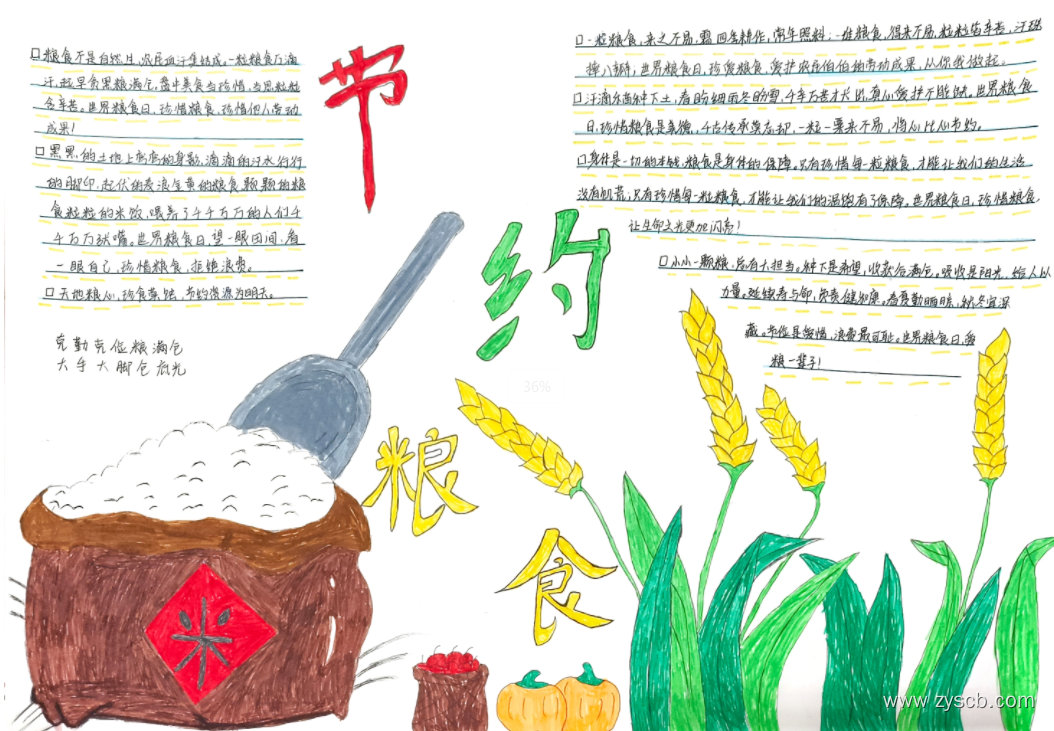 节
约
粮
食
口 粮食不是自然生,农民血汗集结成。一粒粮食几滴
汗,起早贪黑粮满仓,盘中美食当珍惜,当思粒粒
含辛苦。世界粮食日,珍惜粮食,珍惜他人劳动
成果!
口 黑黑的土地上弯弯的身躯,滴滴的汗水行行
的脚印,起伏的麦浪金黄的粮食,颗颗的粮
食粒粒的米饭,喂养了千千万万的人们千
千万万张嘴。世界粮食日,望一眼田间,看
一眼自己,珍惜粮食,拒绝浪费。
口 天地粮心,珍食莫蚀,节约资源为明天。
克勤克俭粮满仓
大手大脚仓底光
口 一粒粮食,来之不易,需四季耕作,常年照料;一堆粮食,得来不易,粒粒皆辛苦,汗珠
摔八瓣;世界粮食日,珍爱粮食,爱护农民伯伯的劳动成果,从你我做起。
口 汗滴东西种下土,春盼细雨冬盼雪,千辛万苦才长出,真心爱护不能缺。世界粮食
日,珍惜粮食是美德,千古传承莫忘却,一粒一粟来不易,将心比心节约。
口 身体是一切的本钱,粮食是身体的保障。只有珍惜每一粒粮食,才能让我们的生活
没有饥荒,只有珍惜每一粒粮食,才能让我们的温饱有了保障。世界粮食日,珍惜粮食,
让生命之光更加闪亮!
口 小小一颗粮,总有大担当。种下是希望,收获后满仓。吸收是阳光,给人以
力量。延续着与命,负责健和康。春夏勤晒晾,秋冬宜深
藏。节俭是爱惜,浪费最可耻。世界粮食日,爱
粮一辈子!
米
36%
www.zyscb.com